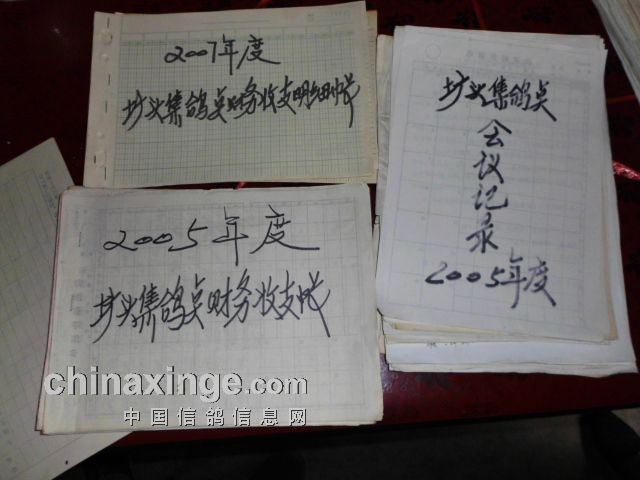 2007年度
圹头集鸽点财务收支明细帐
2005年度
圹头集鸽点财务收支帐
圹头集鸽点
会议记录
2005年度
chinaxinge.com
中国信鸽信息网